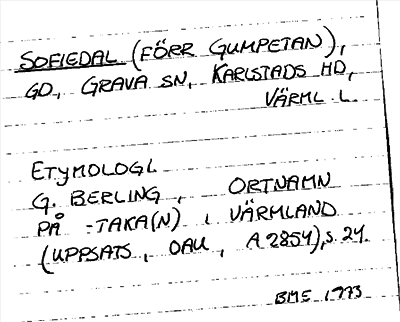 SOFIEDAL (FÖRR GUMPETAN),
GD, GRAVA SN, KARLSTADS HD,
VÄRML. L.
ETYMOLOGI
G. BERLING, ORTNAMN
PÅ -TAKA(N) I VÄRMLAND
(UPPSATS, OAU, A 2854), S. 24.
BME 1973